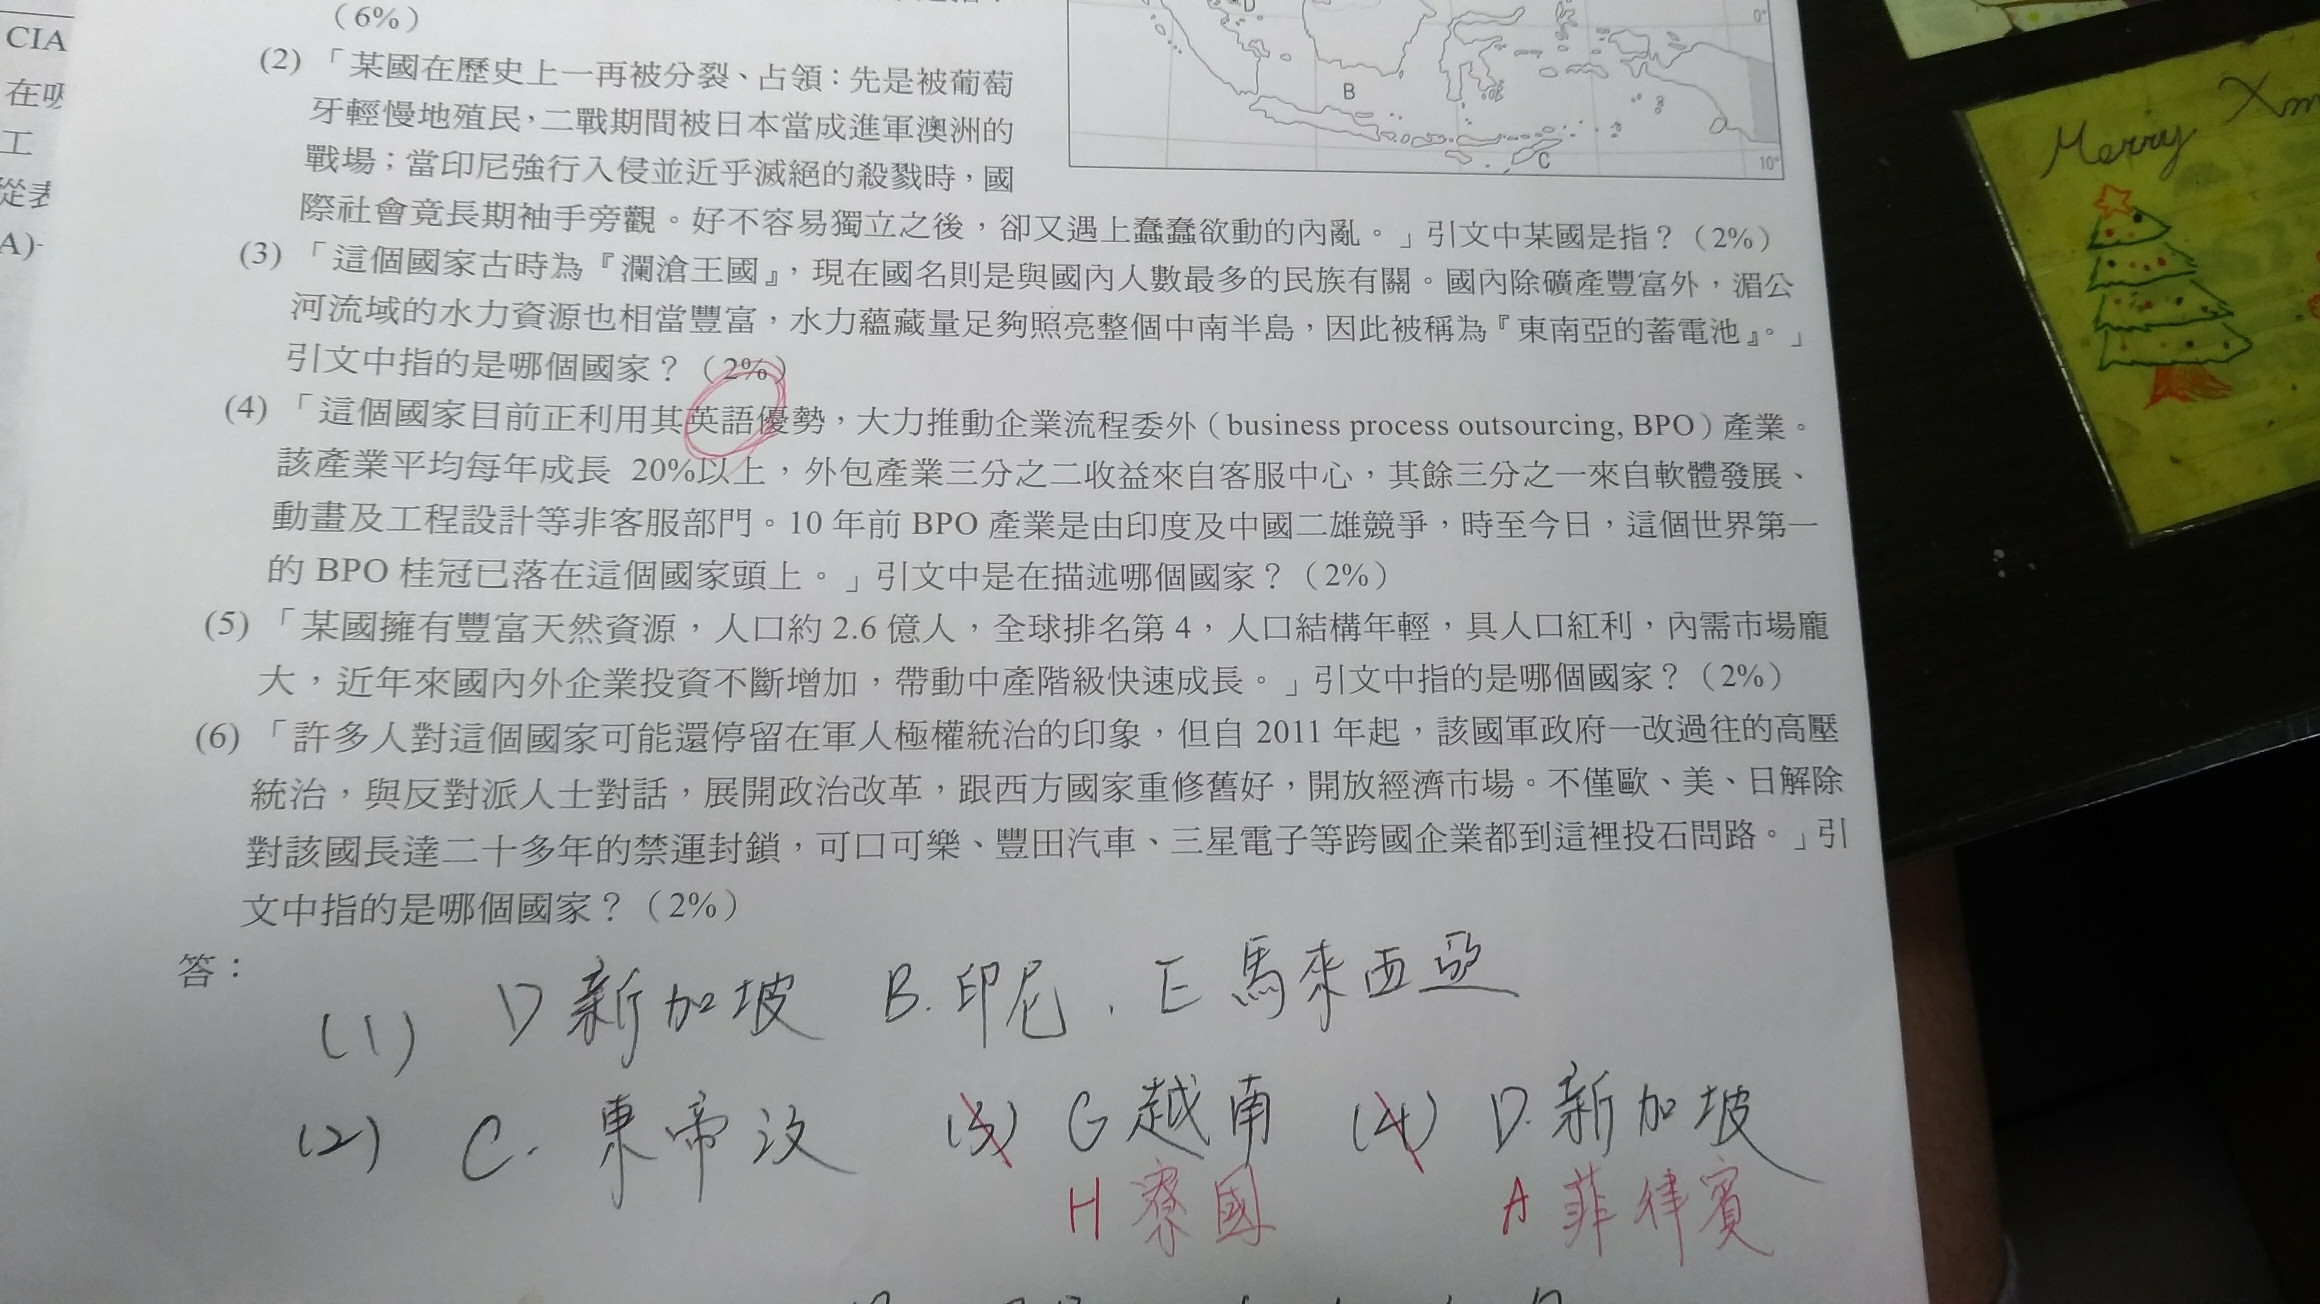 CIA
在
工
從表
A)
(6%)
(2)「某國在歷史上一再被分裂、占領：先是被葡萄
牙輕慢地殖民，二戰期間被日本當成進軍澳洲的
戰場；當印尼強行入侵並近乎滅絕的殺戮時，國
際社會竟長期袖手旁觀。好不容易獨立之後，卻又遇上蠢蠢欲動的內亂。」引文中某國是指？（2%）
(3)「這個國家古時為『瀾滄王國』，現在國名則是與國內人數最多的民族有關。國內除礦產豐富外，湄公
河流域的水力資源也相當豐富，水力蘊藏量足夠照亮整個中南半島，因此被稱為『東南亞的蓄電池』。」
引文中指的是哪個國家？（2%）
(4)「這個國家目前正利用其英語優勢，大力推動企業流程委外（business process outsourcing, BPO）產業。
該產業平均每年成長 20%以上，外包產業三分之二收益來自客服中心，其餘三分之一來自軟體發展、
動畫及工程設計等非客服部門。10 年前 BPO 產業是由印度及中國二雄競爭，時至今日，這個世界第一
的 BPO 桂冠已落在這個國家頭上。」引文中是在描述哪個國家？（2%）
(5)「某國擁有豐富天然資源，人口約 2.6 億人，全球排名第 4，人口結構年輕，具人口紅利，內需市場龐
大，近年來國內外企業投資不斷增加，帶動中產階級快速成長。」引文中指的是哪個國家？（2%）
(6)「許多人對這個國家可能還停留在軍人極權統治的印象，但自 2011 年起，該國軍政府一改過往的高壓
統治，與反對派人士對話，展開政治改革，跟西方國家重修舊好，開放經濟市場。不僅歐、美、日解除
對該國長達二十多年的禁運封鎖，可口可樂、豐田汽車、三星電子等跨國企業都到這裡投石問路。」引
文中指的是哪個國家？（2%）
答：
(1) D 新加坡 B. 印尼. E 馬來西亞
(2) C. 東帝汶 (3) G 越南 (4) D. 新加坡
H 寮國 A 菲律賓
D
B
C
0°
10°
Merry